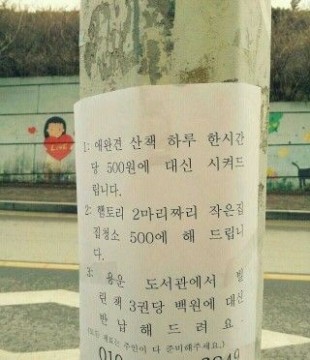 1: 애완견 산책 하루 한시간
당 500원에 대신 시켜드
립니다.
2: 햄토리 2마리짜리 작은집
집청소 500에 해 드립니
다.
3: 용운 도서관에서 빌
린책 3권당 백원에 대신
반납해드려요
주인이 다 준비해주세요)
010 3849